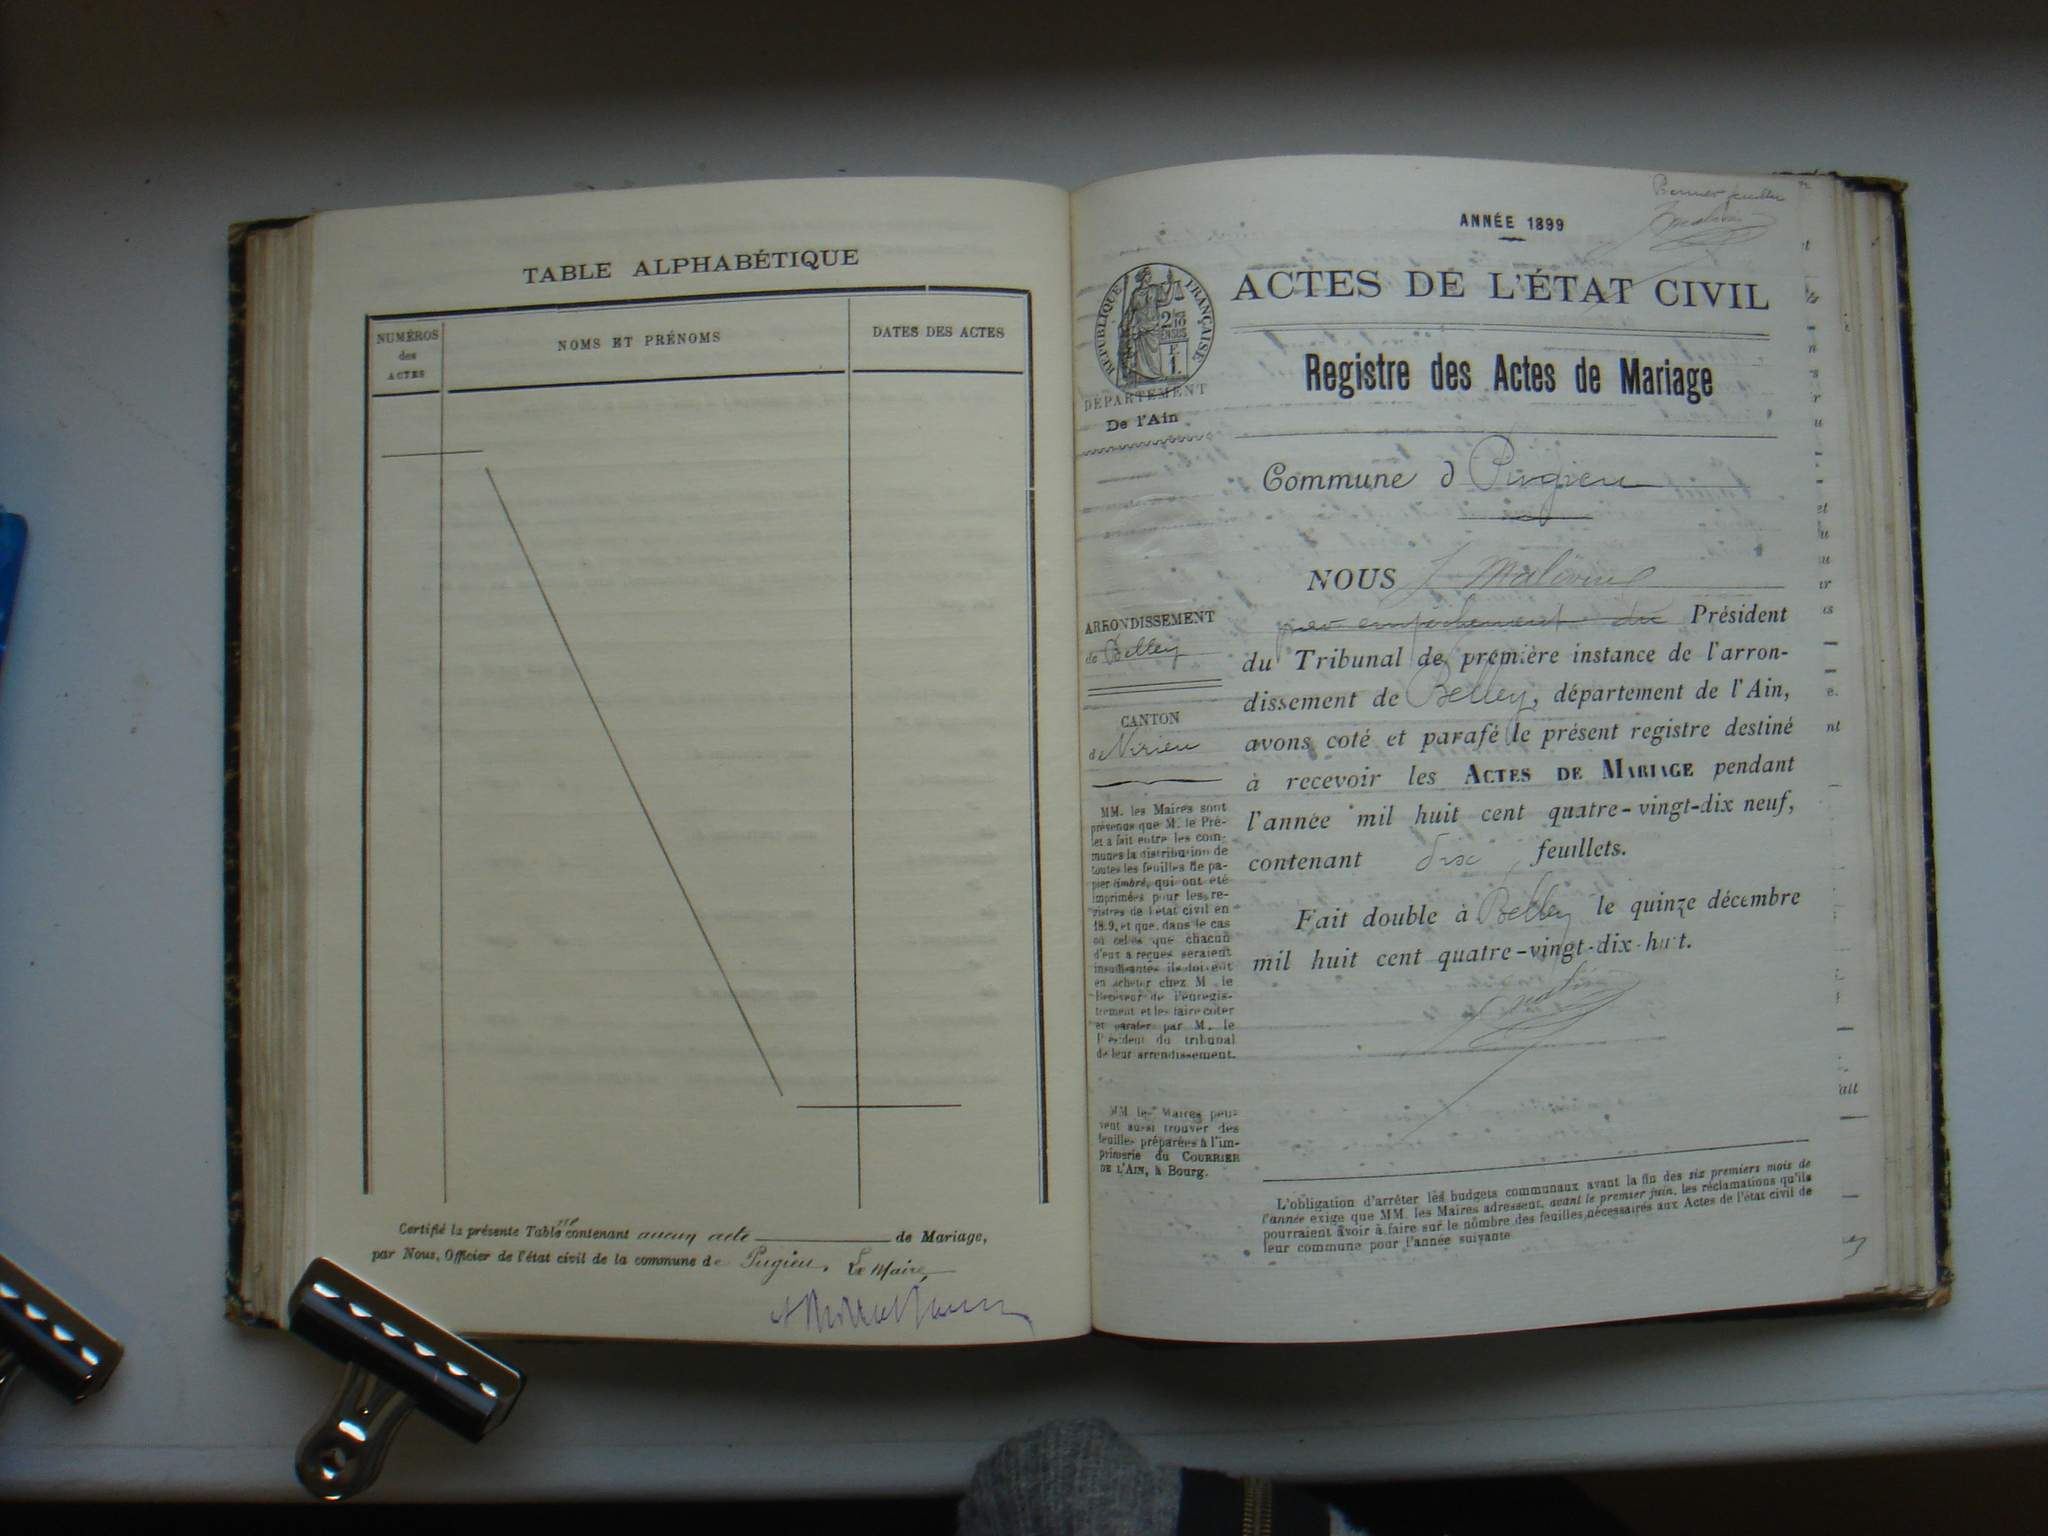 TABLE ALPHABÉTIQUE
NUMÉROS
des
ACTES
NOMS ET PRÉNOMS
DATES DES ACTES
Certifié la présente Table contenant aucun acte de Mariage,
par Nous, Officier de l'état civil de la commune de Pugieu, Le Maire,
ANNÉE 1899
RÉPUBLIQUE FRANÇAISE
ACTES DE L'ÉTAT CIVIL
Registre des Actes de Mariage
DÉPARTEMENT
De l'Ain
Commune d Pugieu
NOUS
par empêchement du Président
du Tribunal de première instance de l'arron-
dissement de Belley, département de l'Ain,
avons coté et parafé le présent registre destiné
à recevoir les ACTES DE MARIAGE pendant
l'année mil huit cent quatre-vingt-dix neuf,
contenant dix feuillets.
Fait double à Belley le quinze décembre
mil huit cent quatre-vingt-dix-huit.
ARRONDISSEMENT
de Belley
CANTON
de Virieu
MM. les Maires sont
prévenus que M. le Pré-
fet a fait entre les com-
munes la distribution de
toutes les feuilles de pa-
pier timbré, qui ont été
imprimées pour les re-
gistres de l'état civil en
1899, et que, dans le cas
où celles que chacun
d'eux a reçues seraient
insuffisantes ils doivent
en acheter chez M. le
Receveur de l'enregis-
trement et les faire coter
et parafer par M. le
Président du tribunal
de leur arrondissement.
MM. les Maires peu-
vent aussi trouver des
feuilles préparées à l'im-
primerie du COURRIER
DE L'AIN, à Bourg.
L'obligation d'arrêter les budgets communaux avant la fin des six premiers mois de
l'année exige que MM. les Maires adressent, avant le premier juin, les réclamations qu'ils
pourraient avoir à faire sur le nombre des feuilles nécessaires aux Actes de l'état civil de
leur commune pour l'année suivante